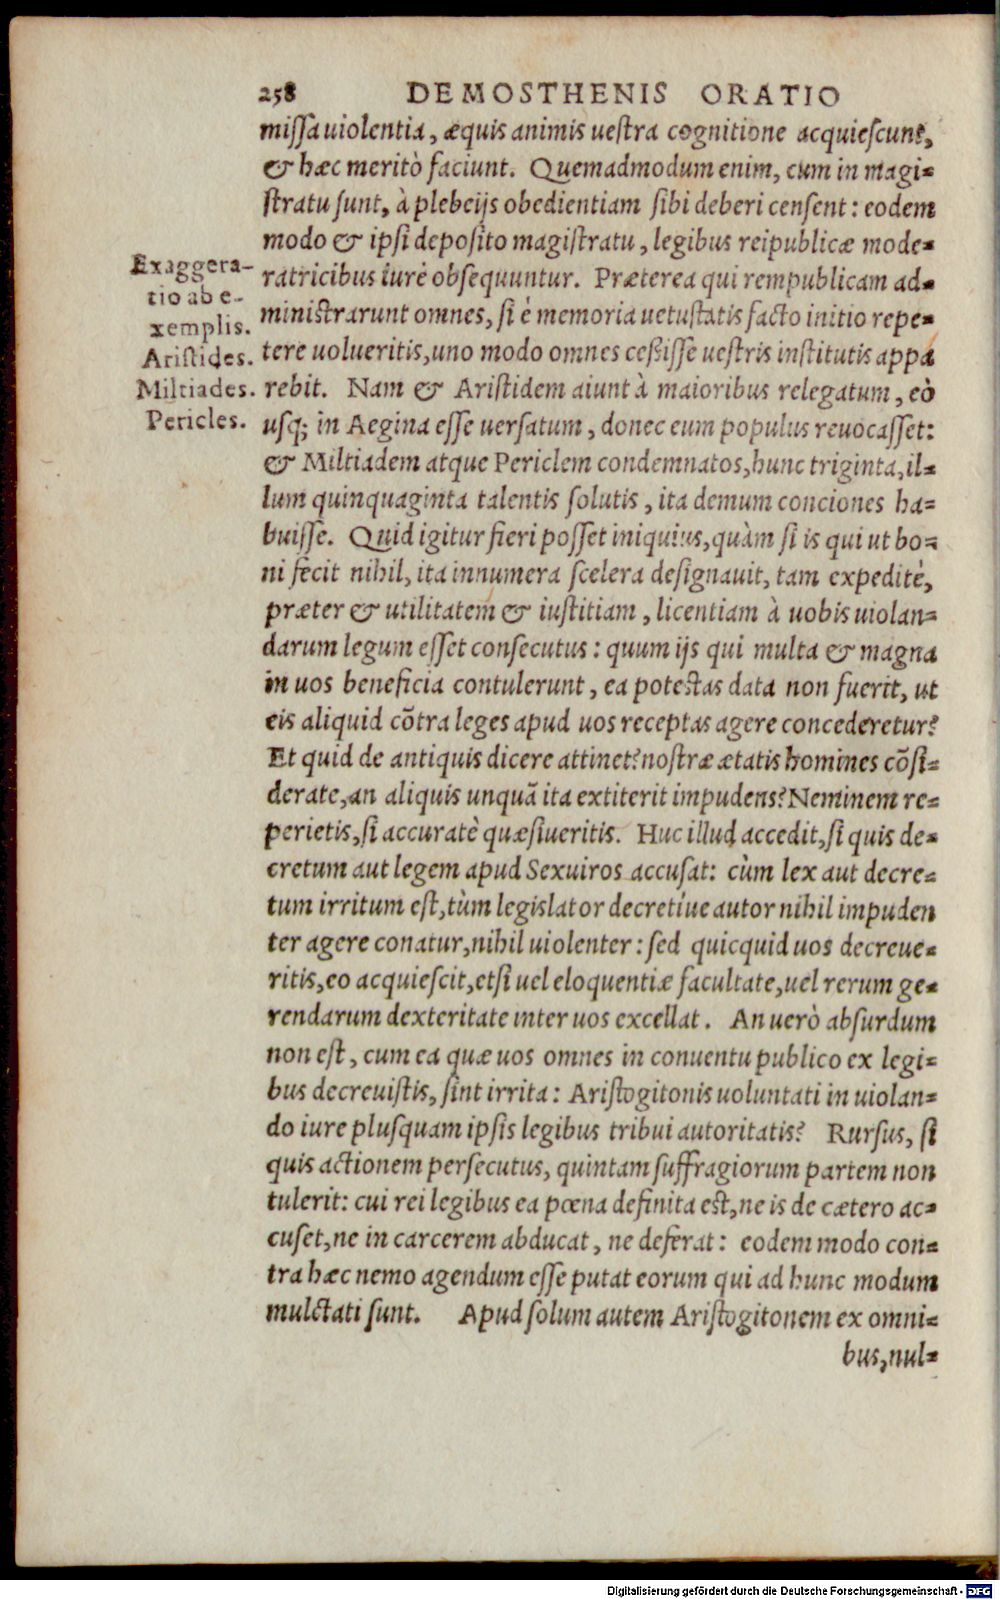 258 DEMOSTHENIS ORATIO
missa uiolentia, æquis animis uestra cognitione acquiescunt,
& hæc meritò faciunt. Quemadmodum enim, cum in magi-
stratu sunt, à plebeijs obedientiam sibi deberi censent: eodem
modo & ipsi deposito magistratu, legibus reipublicæ mode-
ratricibus iure obsequuntur. Præterea qui rempublicam ad-
ministrarunt omnes, si è memoria uetustatis facto initio repe-
tere uolueritis, uno modo omnes cessisse uestris institutis appa
rebit. Nam & Aristidem aiunt à maioribus relegatum, eò
usq; in Aegina esse uersatum, donec eum populus reuocasset:
& Miltiadem atque Periclem condemnatos, hunc triginta, il-
lum quinquaginta talentis solutis, ita demum conciones ha-
buisse. Quid igitur fieri posset iniquius, quàm si is qui ut bo-
ni fecit nihil, ita innumera scelera designauit, tam expeditè,
præter & utilitatem & iustitiam, licentiam à uobis uiolan-
darum legum esset consecutus: quum ijs qui multa & magna
in uos beneficia contulerunt, ea potestas data non fuerit, ut
eis aliquid cōtra leges apud uos receptas agere concederetur?
Et quid de antiquis dicere attinet? nostræ ætatis homines cōsi-
derate, an aliquis unquā ita extiterit impudens? Neminem re-
perietis, si accuratè quæsiueritis. Huc illud accedit, si quis de-
cretum aut legem apud Sexuiros accusat: cùm lex aut decre-
tum irritum est, tùm legislator decretíue autor nihil impuden
ter agere conatur, nihil uiolenter: sed quicquid uos decreue-
ritis, eo acquiescit, etsi uel eloquentiæ facultate, uel rerum ge-
rendarum dexteritate inter uos excellat. An uerò absurdum
non est, cum ea quæ uos omnes in conuentu publico ex legi-
bus decreuistis, sint irrita: Aristogitonis uoluntati in uiolan-
do iure plusquam ipsis legibus tribui autoritatis? Rursus, si
quis actionem persecutus, quintam suffragiorum partem non
tulerit: cui rei legibus ea pœna definita est, ne is de cætero ac-
cuset, ne in carcerem abducat, ne deferat: eodem modo con-
tra hæc nemo agendum esse putat eorum qui ad hunc modum
mulctati sunt. Apud solum autem Aristogitonem ex omni-
bus, nul-
Exaggera-
tio ab e-
xemplis.
Aristides.
Miltiades.
Pericles.
Digitalisierung gefördert durch die Deutsche Forschungsgemeinschaft - DFG